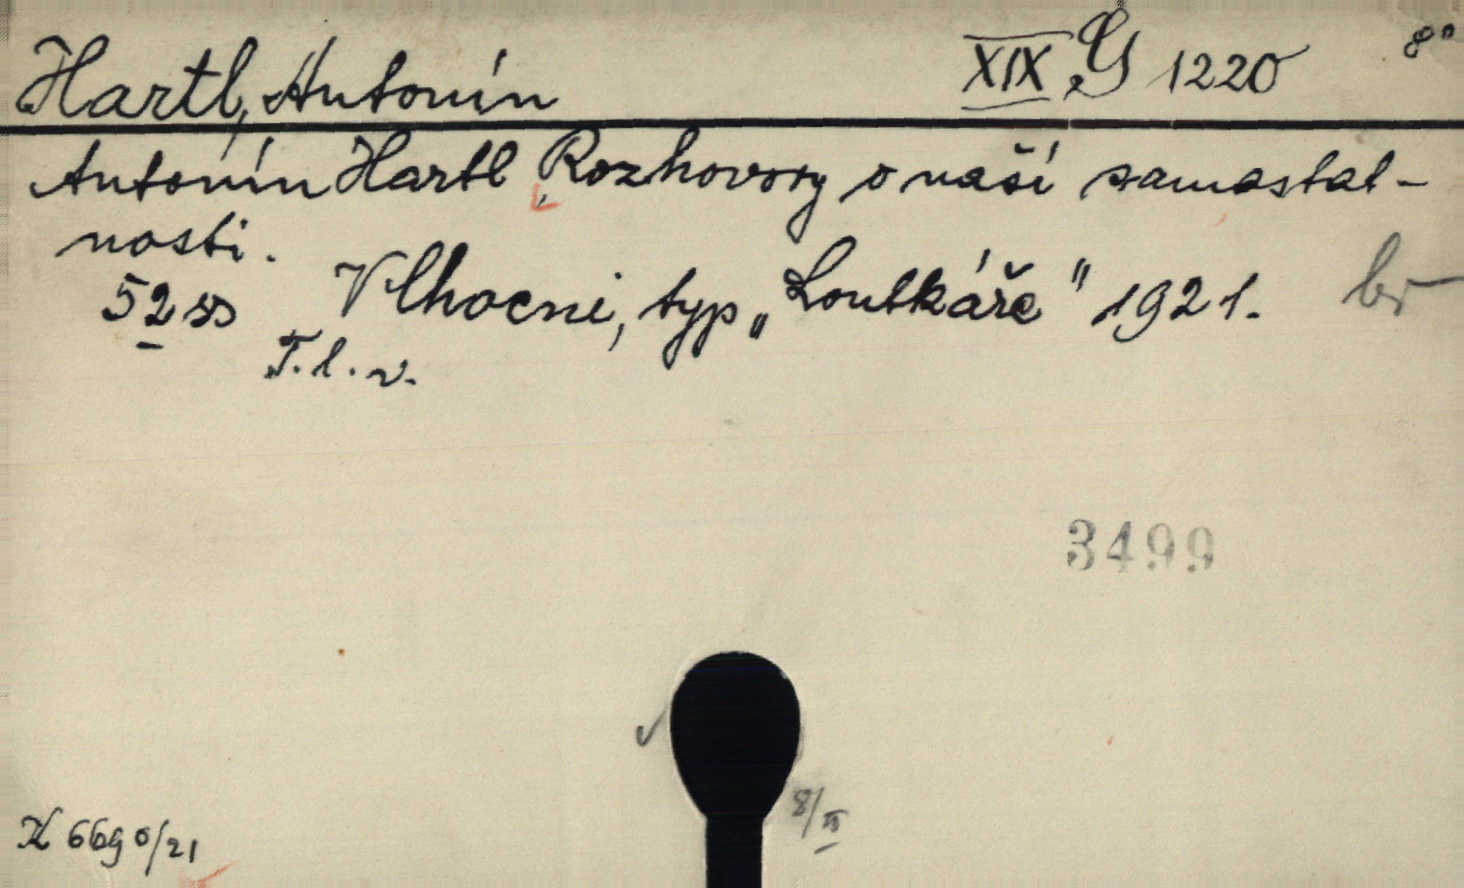 Hartl, Antonín XIX G 1220 8°
Antonín Hartl, Rozhovory o naší samostat-
nosti.
52 ss V Chocni, typ „Loutkáře" 1921. br
T. l. v.
3499
8/II
K 6690/21